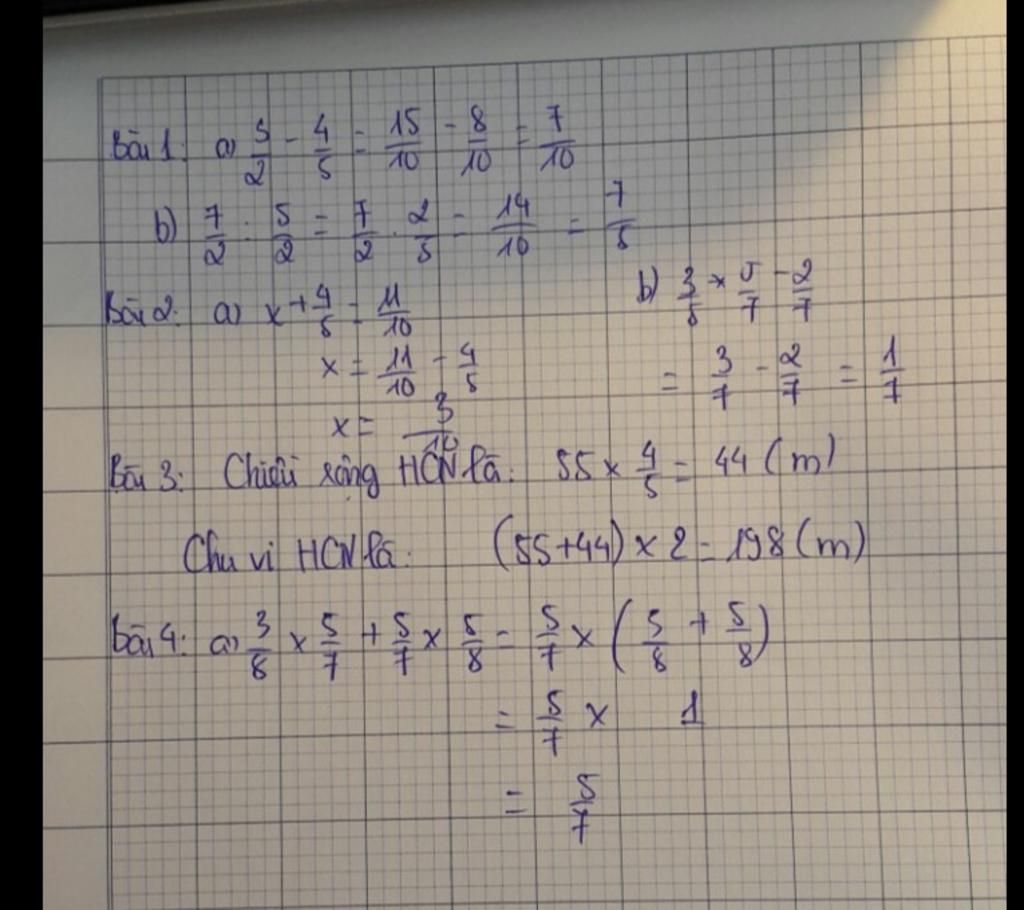 Bài 1: a) 3/2 - 4/5 = 15/10 - 8/10 = 7/10
b) 7/2 : 5/2 = 7/2 . 2/5 = 14/10 = 7/5
Bài 2: a) x + 4/5 = 11/10
x = 11/10 - 4/5
x = 3/10
b) 3/5 × 5/7 - 2/7
= 3/7 - 2/7 = 1/7
Bài 3: Chiều rộng HCN là: 55 × 4/5 = 44 (m)
Chu vi HCN là: (55+44) × 2 = 198 (m)
Bài 4: a) 3/8 × 5/7 + 5/7 × 5/8 = 5/7 × (3/8 + 5/8)
= 5/7 × 1
= 5/7